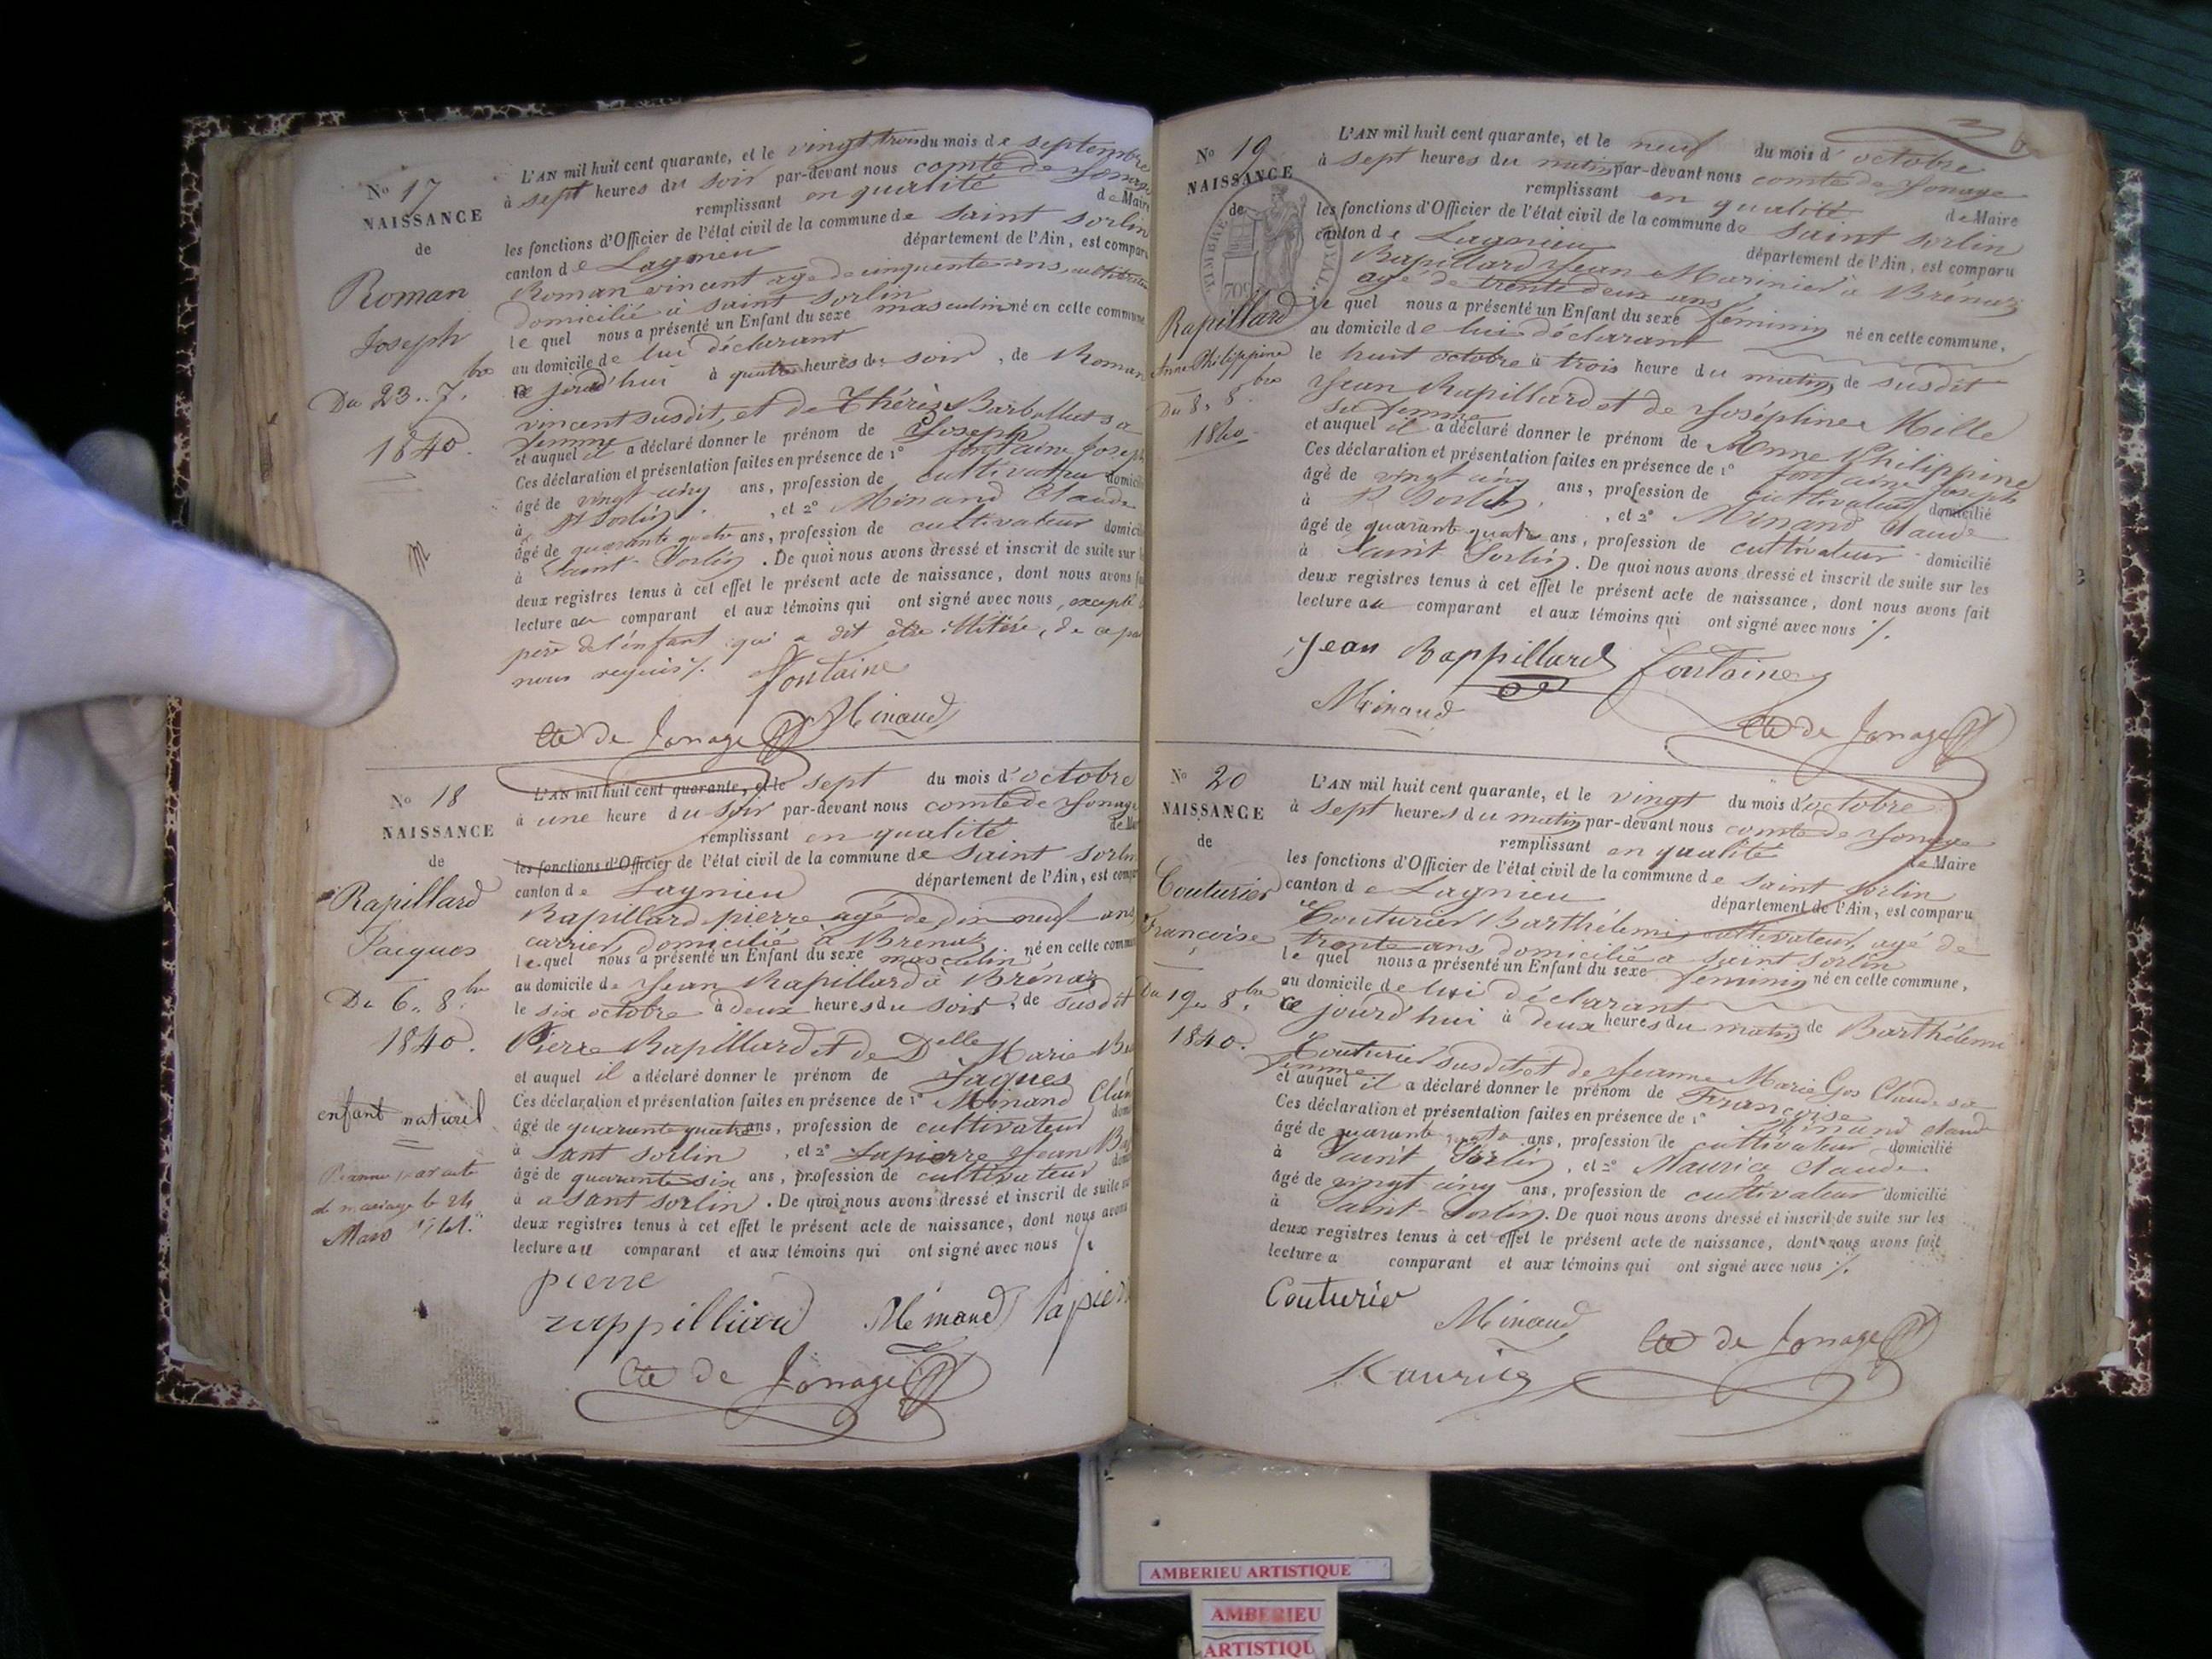 N° 17
NAISSANCE
de
Roman
Joseph
Du 23. 7.bre
1840.
L'AN mil huit cent quarante, et le vingt trois du mois de septembre
à sept heures du soir par-devant nous comte de Jonage
remplissant en qualité de Maire
les fonctions d'Officier de l'état civil de la commune de saint sorlin
canton de Lagnieu département de l'Ain, est comparu
Roman vincent age de cinquante ans, cultivateur
domicilié à saint sorlin
le quel nous a présenté un Enfant du sexe masculin né en cette commune
au domicile de lui déclarant
ce jourd'hui à quatre heures du soir, de Roman
vincent susdit, et de Thérèse sa
femme
et auquel il a déclaré donner le prénom de Joseph
Ces déclaration et présentation faites en présence de 1° fontaine Joseph
âgé de vingt cinq ans, profession de cultivateur domicilié
à St Sorlin, et 2° Minand Claude
âgé de quarante quatre ans, profession de cultivateur domicilié
à Saint Sorlin. De quoi nous avons dressé et inscrit de suite sur
deux registres tenus à cet effet le présent acte de naissance, dont nous avons
lecture au comparant et aux témoins qui ont signé avec nous, excepté
père de l'enfant qui a dit être illitéré, de ce par
nous requis %.
Fontaine
Minaud
Cte de Jonage
N° 18
NAISSANCE
de
Rapillard
Jacques
Du 6. 8.bre
1840.
enfant naturel
L'AN mil huit cent quarante, et le sept du mois d'octobre
à une heure du soir par-devant nous comte de Jonage
remplissant en qualité de Maire
les fonctions d'Officier de l'état civil de la commune de saint sorlin
canton de Lagnieu département de l'Ain, est comparu
Rapillard pierre agé de dix neuf ans
carrier, domicilié à Brenaz
le quel nous a présenté un Enfant du sexe masculin né en cette commune
au domicile de Jean Rapillard à Brénaz
le six octobre à deux heures du soir, de susdit
Pierre Rapillard et de Delle Marie
et auquel il a déclaré donner le prénom de Jaques
Ces déclaration et présentation faites en présence de 1° Minand
âgé de quarante quatre ans, profession de cultivateur
à sant sorlin, et 2° Lapierre Jean
âgé de quarante six ans, profession de cultivateur
à a sant sorlin. De quoi nous avons dressé et inscrit de suite sur
deux registres tenus à cet effet le présent acte de naissance, dont nous avons
lecture au comparant et aux témoins qui ont signé avec nous %.
pierre
rappilliard Minaud lapierre
Cte de Jonage
de mariage le 24
Mars
N° 19
NAISSANCE
de
TIMBRE ROYAL
Rapillard
Anne Philippine
Du 8. 8.bre
1840
L'AN mil huit cent quarante, et le neuf du mois d'octobre
à sept heures du matin par-devant nous comte de Jonage
remplissant en qualité de Maire
les fonctions d'Officier de l'état civil de la commune de saint sorlin
canton de Lagnieu département de l'Ain, est comparu
Rapillard Jean Marinier à Brénaz
agé de trente deux ans
le quel nous a présenté un Enfant du sexe féminin né en cette commune,
au domicile de lui déclarant
le huit octobre à trois heure du matin, de susdit
Jean Rapillard et de Joséphine Mille
sa femme
et auquel il a déclaré donner le prénom de Anne Philippine
Ces déclaration et présentation faites en présence de 1° fontaine Joseph
âgé de vingt cinq ans, profession de cultivateur domicilié
à St Sorlin, et 2° Minand Claude
âgé de quarante quatre ans, profession de cultivateur domicilié
à Saint Sorlin. De quoi nous avons dressé et inscrit de suite sur les
deux registres tenus à cet effet le présent acte de naissance, dont nous avons fait
lecture au comparant et aux témoins qui ont signé avec nous %.
Jean Rappillard fontaine
Minaud
Cte de Jonage
N° 20
NAISSANCE
de
Couturier
Francoise
Du 19. 8.bre
1840.
L'AN mil huit cent quarante, et le vingt du mois d'octobre
à sept heures du matin par-devant nous comte de Jonage
remplissant en qualité de Maire
les fonctions d'Officier de l'état civil de la commune de saint sorlin
canton de Lagnieu département de l'Ain, est comparu
Couturier Barthélemi cultivateur, agé de
trente ans, domicilié a saint sorlin
le quel nous a présenté un Enfant du sexe feminin né en cette commune,
au domicile de lui déclarant
ce jourd'hui à deux heures du matin, de Barthélemi
Couturier susdit et de Jeanne Marie Gos Claude sa
femme
et auquel il a déclaré donner le prénom de Françoise
Ces déclaration et présentation faites en présence de 1° Minand claude
âgé de quarante quatre ans, profession de cultivateur domicilié
à Saint Sorlin, et 2° Maurice claude
âgé de vingt cinq ans, profession de cultivateur domicilié
à Saint-Sorlin. De quoi nous avons dressé et inscrit de suite sur les
deux registres tenus à cet effet le présent acte de naissance, dont nous avons fait
lecture a comparant et aux témoins qui ont signé avec nous %.
Couturier
Minaud
Cte de Jonage
Maurice
AMBERIEU ARTISTIQUE
AMBERIEU
ARTISTIQU